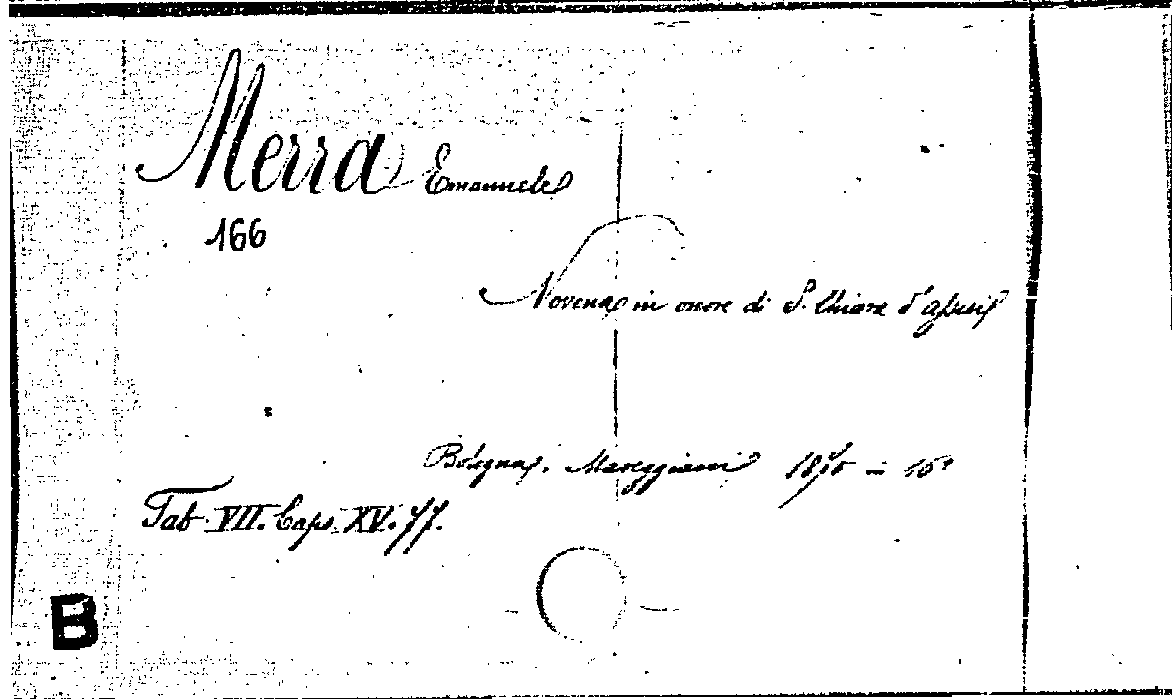 Merra Emanuele
166
Novena in onore di S. Chiara d'Assisi
Bologna, Mareggiani - 16°
Tab. VII. Caps. XV. 77.
B